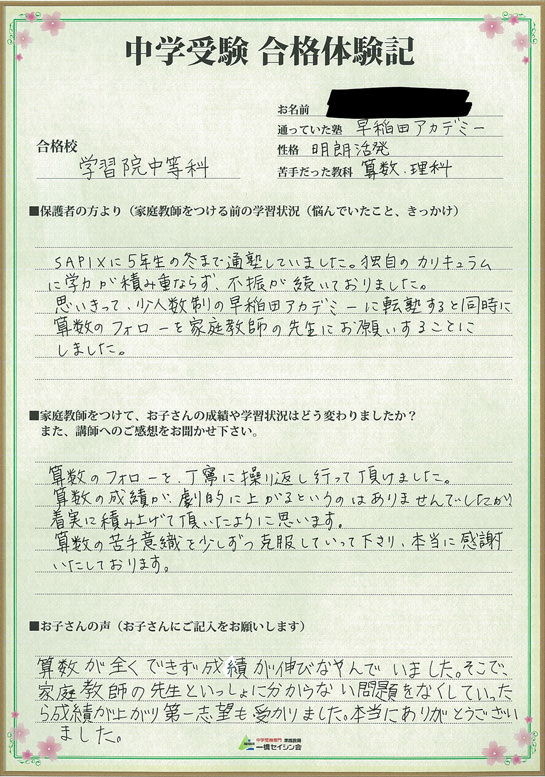 中学受験 合格体験記
お名前
通っていた塾 早稲田アカデミー
合格校
学習院中等科
性格 明朗活発
苦手だった教科 算数・理科
■保護者の方より（家庭教師をつける前の学習状況（悩んでいたこと、きっかけ）
SAPIXに5年生の冬まで通塾していました。独自のカリキュラム
に学力が積み重ならず、不振が続いておりました。
思いきって、少人数制の早稲田アカデミーに転塾すると同時に
算数のフォローを家庭教師の先生にお願いすることに
しました。
■家庭教師をつけて、お子さんの成績や学習状況はどう変わりましたか？
また、講師へのご感想をお聞かせ下さい。
算数のフォローを、丁寧に操り返し行って頂けました。
算数の成績が、劇的に上がるというのはありませんでしたが、
着実に積み上げて頂いたように思います。
算数の苦手意織を少しずつ克服していって下さり、本当に感謝
いたしております。
■お子さんの声（お子さんにご記入をお願いします）
算数が全くできず成績が伸びなやんでいました。そこで、
家庭教師の先生といっしょに分からない問題をなくしていった
ら成績が上がり第一志望も受かりました。本当にありがとうござい
ました。
中学受験専門 家庭教師
一橋セイシン会